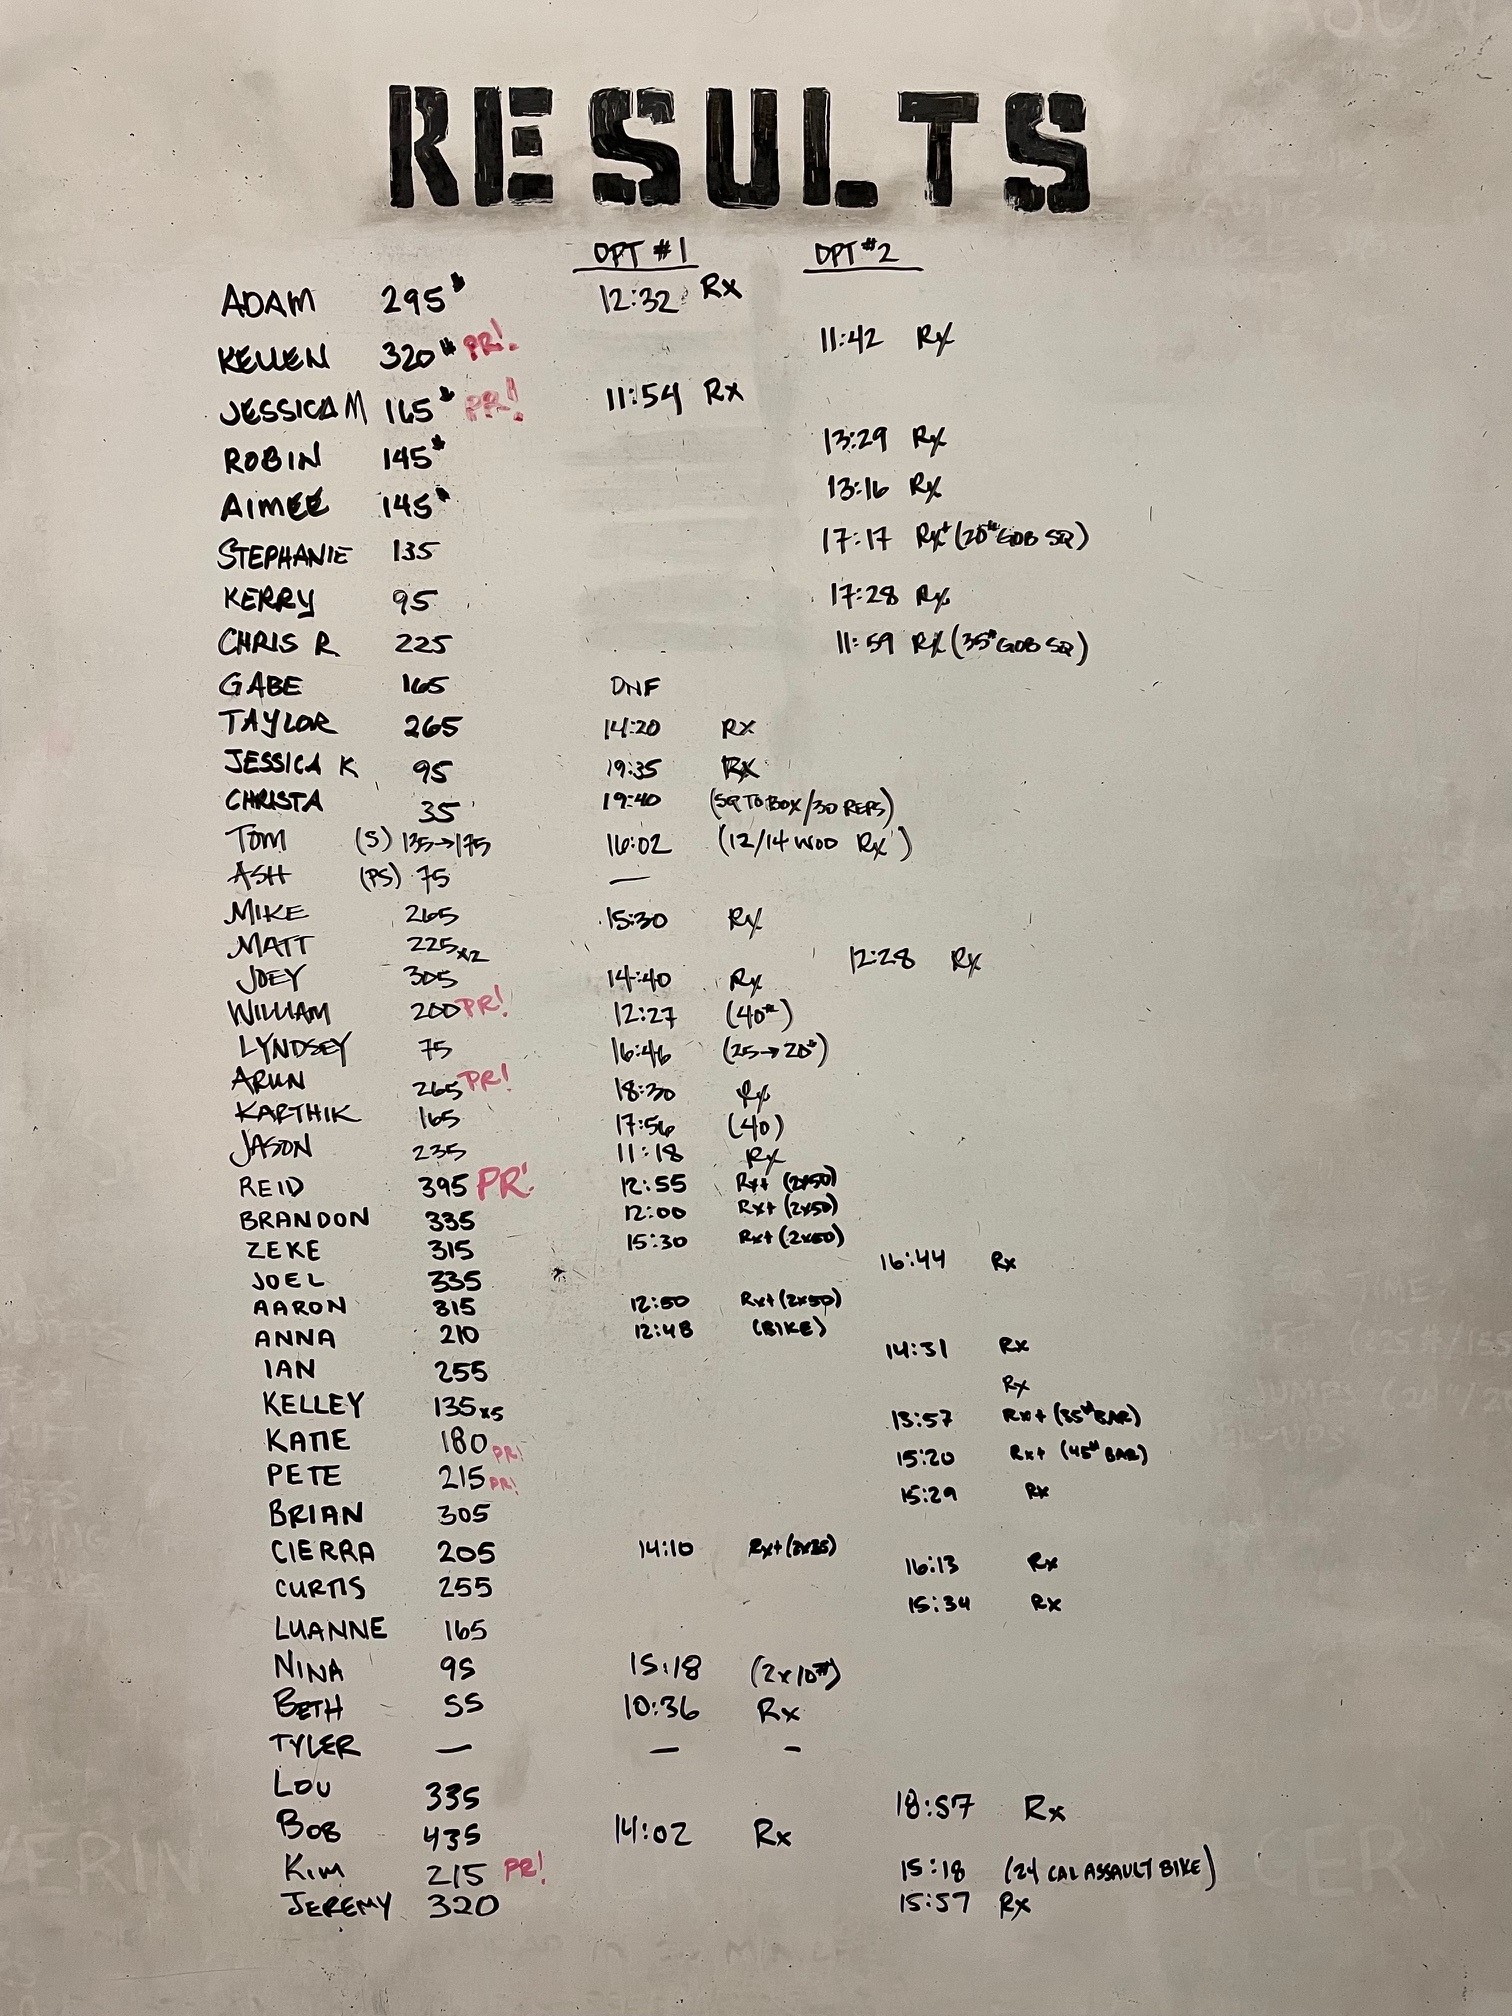 RESULTS
OPT #1 OPT #2
ADAM 295# 12:32 Rx
KELLEN 320# PR! 11:42 Rx
JESSICA M 165# PR! 11:54 Rx
ROBIN 145# 13:29 Rx
AIMEE 145# 13:16 Rx
STEPHANIE 135 17:17 Rx+ (20# GOB SQ)
KERRY 95 17:28 Rx
CHRIS R 225 11:59 Rx (35# GOB SQ)
GABE 165 DNF
TAYLOR 265 14:20 Rx
JESSICA K 95 19:35 Rx
CHRISTA 35 19:40 (SQ TO BOX/30 REPS)
TOM (S) 135→175 16:02 (12/14 WOD Rx)
ASH (PS) 75 —
MIKE 265 15:30 Rx
MATT 225x2 12:28 Rx
JOEY 305 14:40 Rx
WILLIAM 200 PR! 12:27 (40#)
LYNDSEY 75 16:46 (25→20#)
ARUN 265 PR! 18:30 Rx
KARTHIK 165 17:56 (40)
JASON 235 11:18 Rx
REID 395 PR! 12:55 Rx+ (2x50)
BRANDON 335 12:00 Rx+ (2x50)
ZEKE 315 15:30 Rx+ (2x50)
JOEL 335 16:44 Rx
AARON 315 12:50 Rx+ (2x50)
ANNA 210 12:48 (BIKE)
IAN 255 14:31 Rx
KELLEY 135x5 Rx
KATIE 180 PR! 13:57 Rx+ (35# BAR)
PETE 215 PR! 15:20 Rx+ (45# BAR)
BRIAN 305 15:29 Rx
CIERRA 205 14:10 Rx+ (2x35)
CURTIS 255 16:13 Rx
LUANNE 165 15:34 Rx
NINA 95 15:18 (2x10#)
BETH 55 10:36 Rx
TYLER — — -
LOU 335 18:57 Rx
BOB 435 14:02 Rx
KIM 215 PR! 15:18 (24 CAL ASSAULT BIKE)
JEREMY 320 15:57 Rx